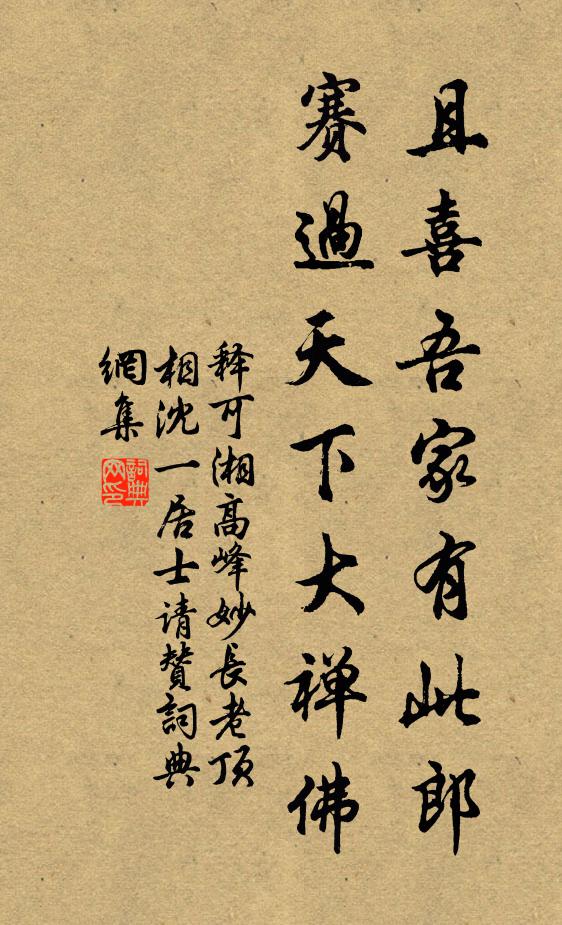 且喜吾家有此郎
賽過天下大禅佛
释可湘高峰妙長老頂
相沈一居士请賛詞典
網集
詞典网印